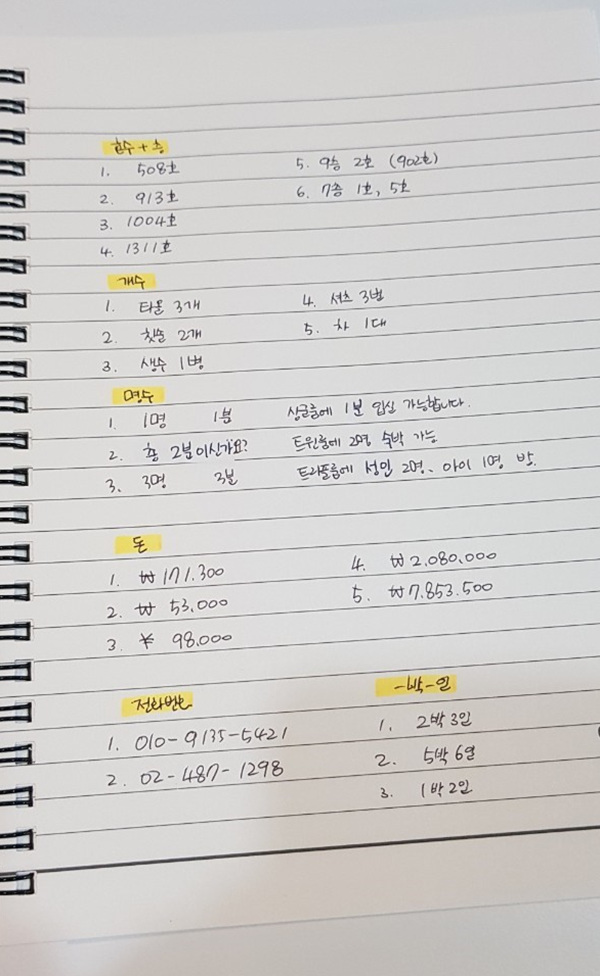 호수 + 층
1. 508호
2. 913호
3. 1004호
4. 1311호
5. 9층 2호 (902호)
6. 7층 1호, 5호
개수
1. 타올 3개
2. 칫솔 2개
3. 생수 1병
4. 셔츠 3벌
5. 차 1대
명수
1. 1명 1분 싱글룸에 1분 입실 가능합니다.
2. 총 2분이신가요? 트윈룸에 2명 숙박 가능
3. 3명 3분 트리플룸에 성인 2명, 아이 1명 박.
돈
1. ₩171.300
2. ₩ 53.000
3. ¥ 98.000
4. ₩2.080.000
5. ₩7.853.500
전화번호
1. 010-9135-5421
2. 02-487-1298
-박-일
1. 2박3일
2. 5박6일
3. 1박2일